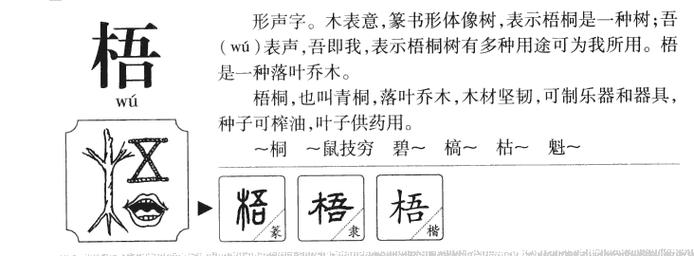 梧
wú
形声字。木表意,篆书形体像树,表示梧桐是一种树;吾
(wú)表声,吾即我,表示梧桐树有多种用途可为我所用。梧
是一种落叶乔木。
梧桐,也叫青桐,落叶乔木,木材坚韧,可制乐器和器具,
种子可榨油,叶子供药用。
～桐 ～鼠技穷 碧～ 槁～ 枯～ 魁～
梧 篆 梧 隶 梧 楷